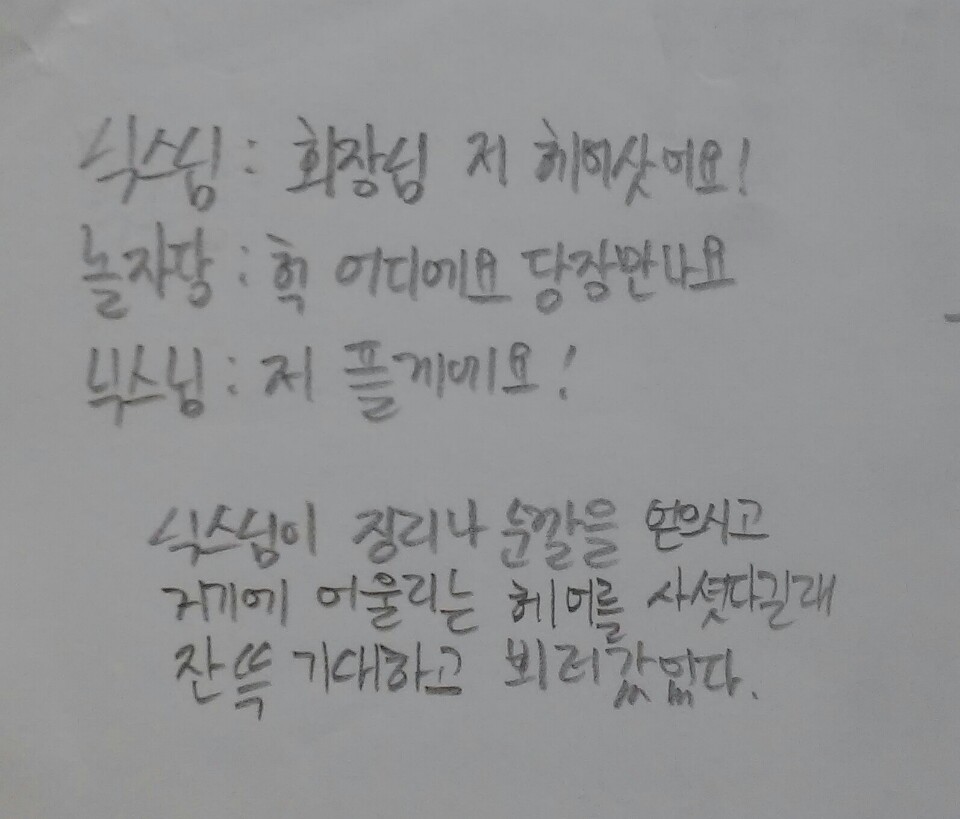 닉스님 : 회장님 저 헤어삿어요!
놀자당 : 헉 어디에요 당장만나요
닉스님 : 저 플게에요!
닉스님이 징리나 눈깔을 얻으시고
거기에 어울리는 헤어를 사셧다길래
잔뜩 기대하고 뵈러갔었다.